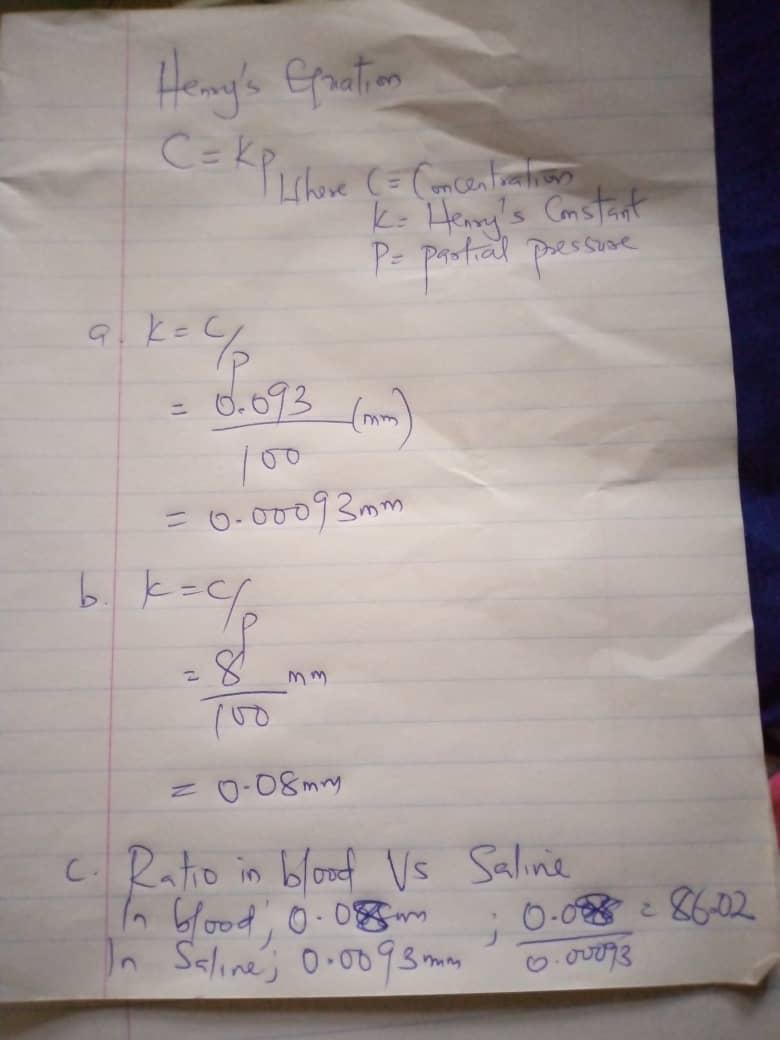 Henry's Equation
C = KP
Where C = Concentration
K = Henry's Constant
P = partial pressure
a. K = C/P
= 0.093 (mm)
100
= 0.00093mm
b. K = C/P
= 8 mm
100
= 0.08mm
c. Ratio in blood Vs Saline
In blood, 0.08mm ; 0.08 = 86.02
In Saline; 0.0093mm 0.00093